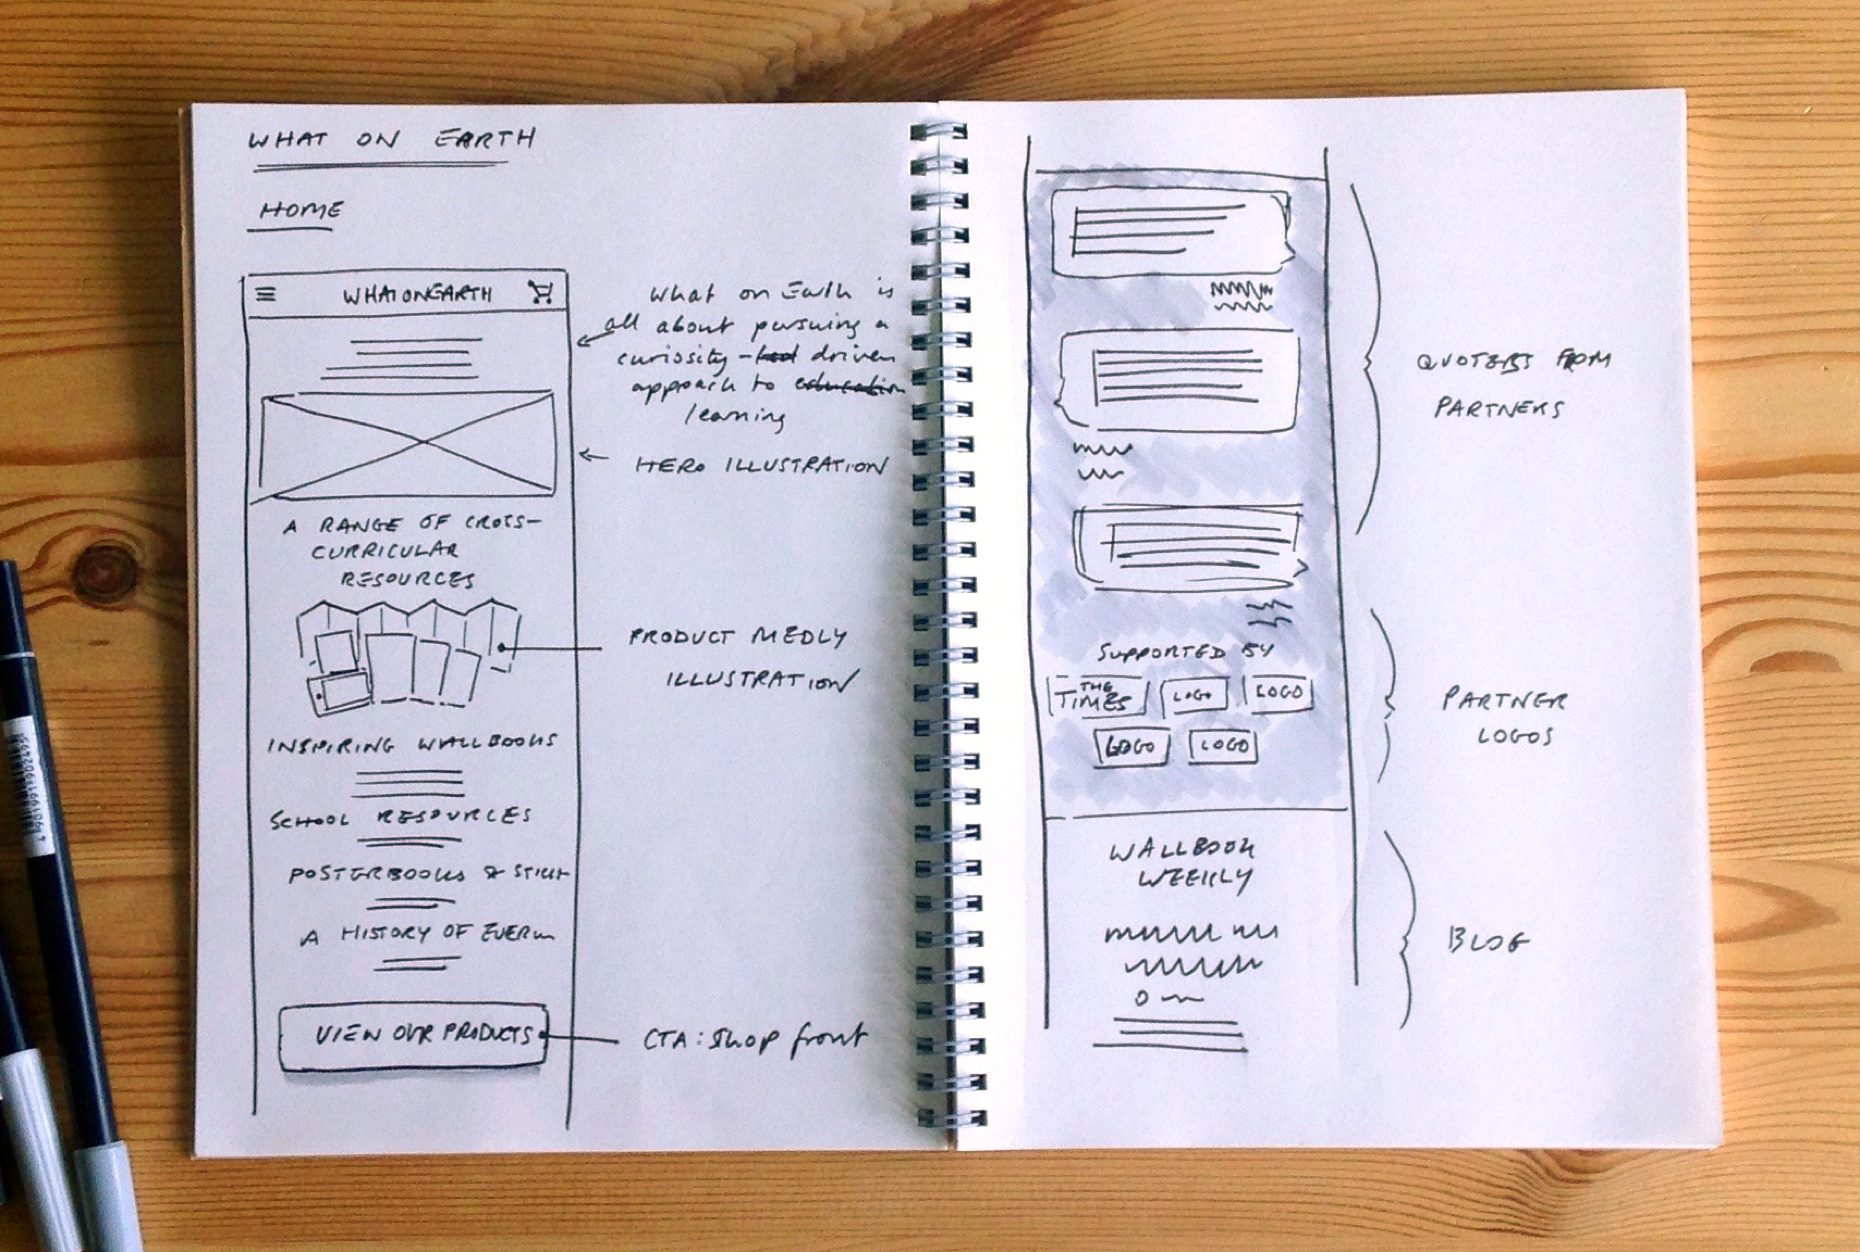 WHAT ON EARTH
HOME
WHATONEARTH
What on Earth is
all about pursuing a
curiosity-led driven
approach to education
learning
HERO ILLUSTRATION
A RANGE OF CROSS-
CURRICULAR
RESOURCES
PRODUCT MEDLY
ILLUSTRATION
INSPIRING WALLBOOKS
SCHOOL RESOURCES
POSTERBOOKS & STICK
A HISTORY OF EVER
VIEW OUR PRODUCTS
CTA: Shop front
QUOTES FROM
PARTNERS
SUPPORTED BY
THE
TIMES
LOGO
LOGO
LOGO
LOGO
PARTNER
LOGOS
WALLBOOK
WEEKLY
BLOG